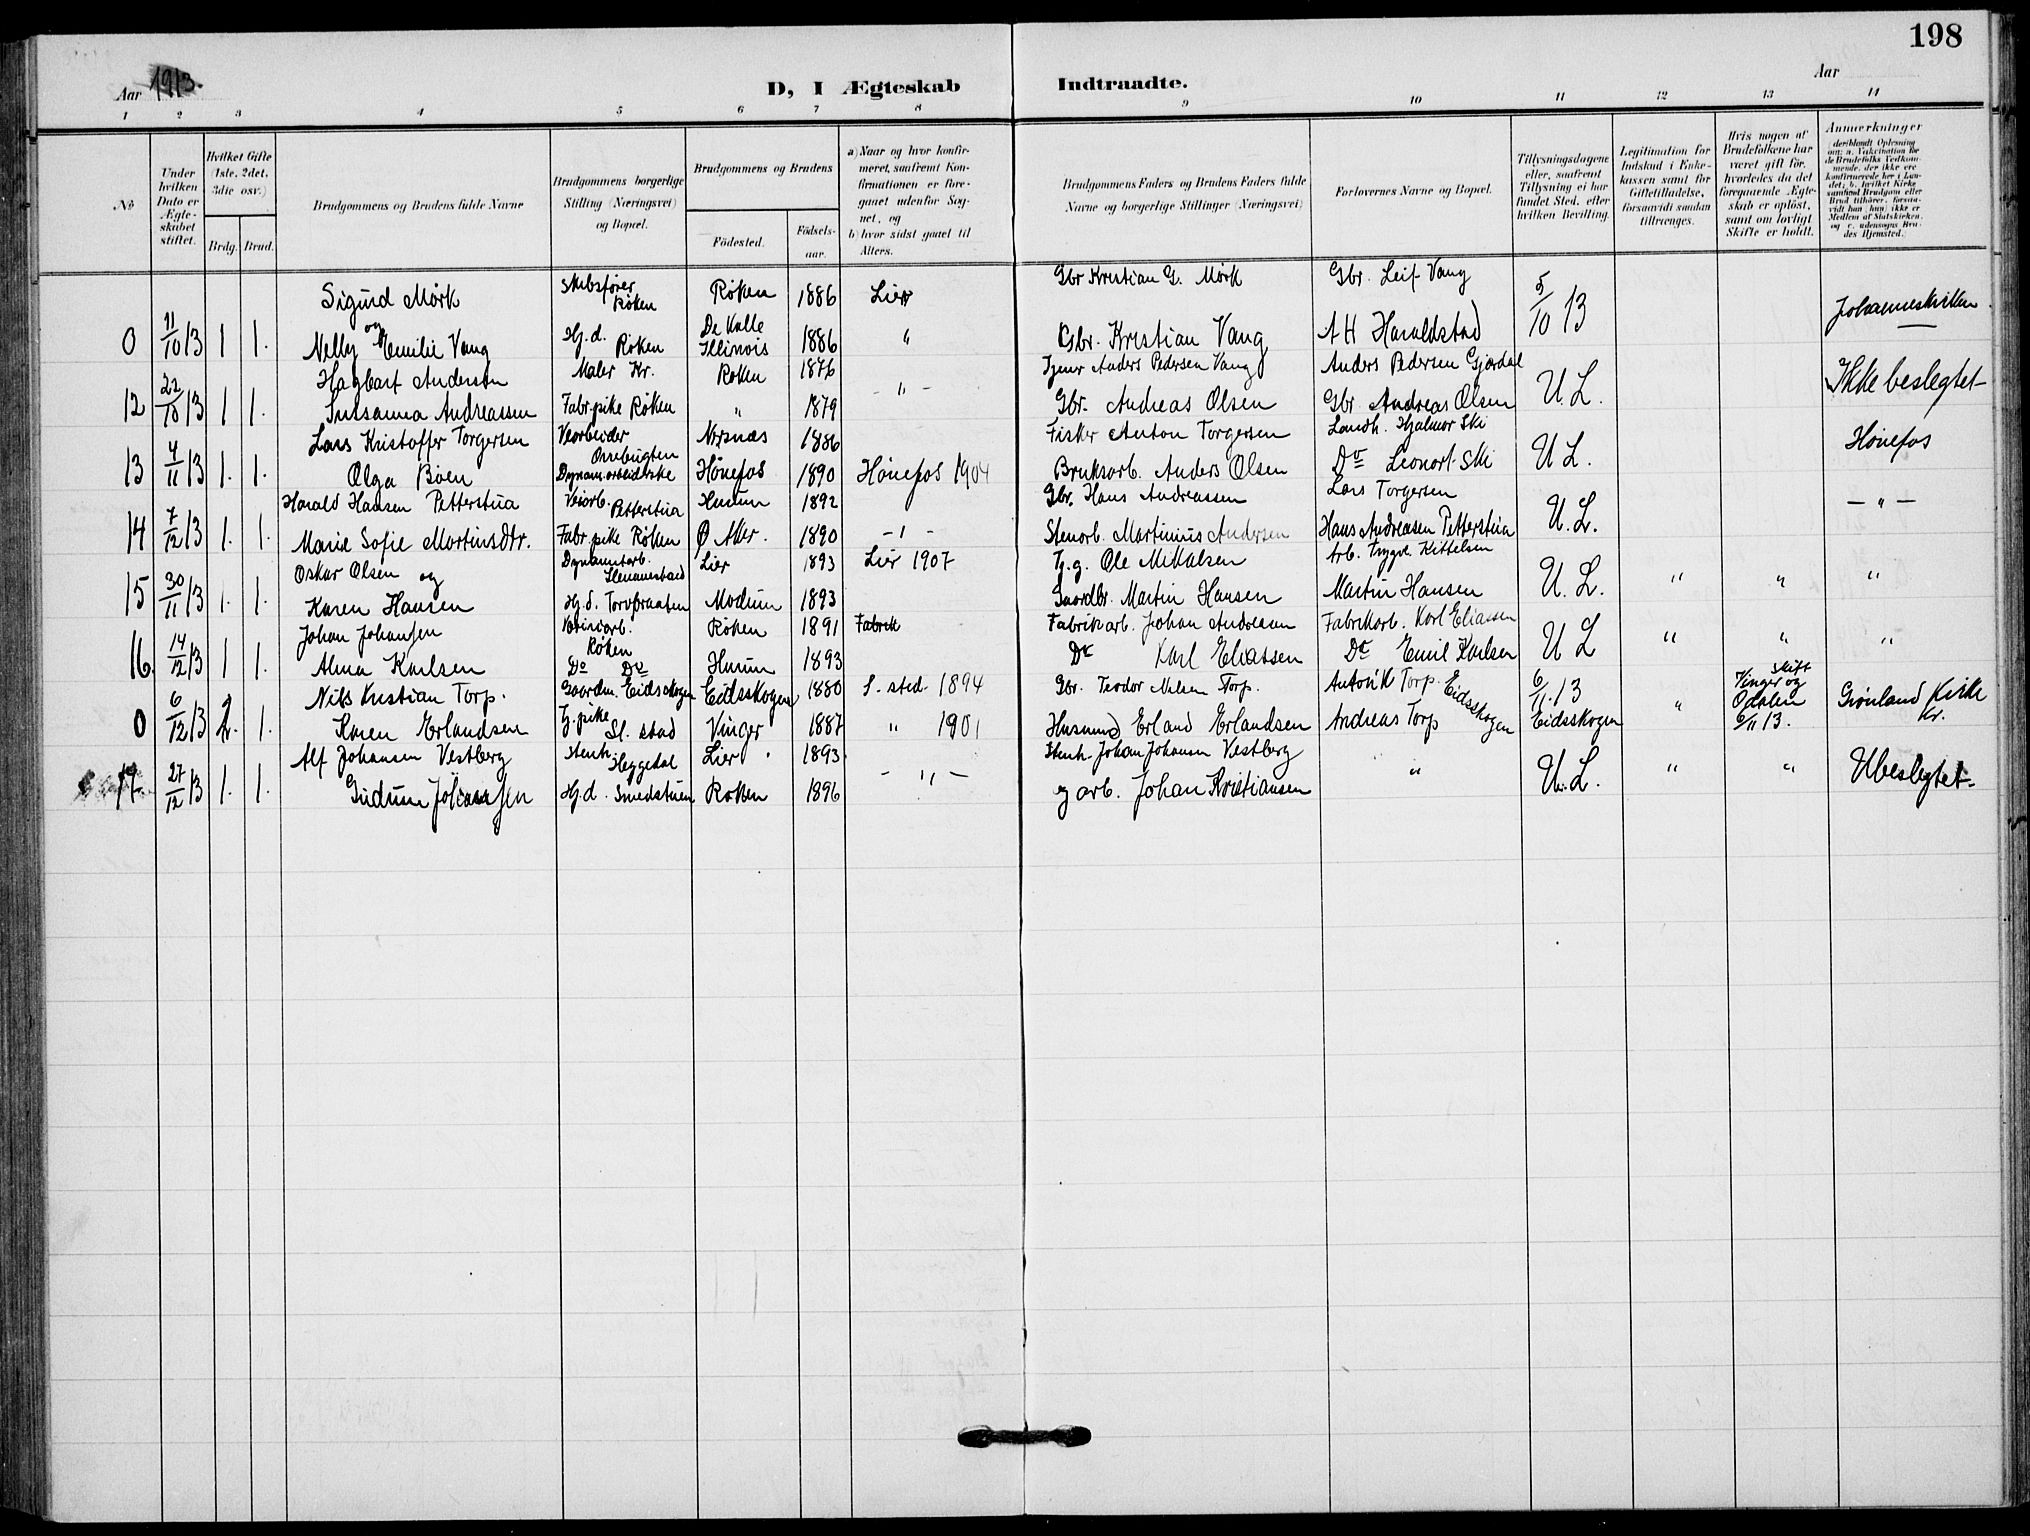 198
Aar 1913. D, I Ægteskab Indtraadte. Aar
1 2 3 4 5 6 7 8 9 10 11 12 13 14
No
Under hvilken Dato er Ægteskabet stiftet.
Hvilket Gifte (1ste, 2det, 3die osv.)
Brdg. Brud.
Brudgommens og Brudens fulde Navne
Brudgommens borgerlige Stilling (Næringsvei) og Bopæl.
Brudgommens og Brudens
Födested. Födselsaar.
a) Naar og hvor konfirmeret, saafremt Konfirmationen er foregaaet udenfor Sognet, og
b) hvor sidst gaaet til Alters.
Brudgommens Faders og Brudens Faders fulde Navne og borgerlige Stillinger (Næringsvei)
Forlovernes Navne og Bopæl.
Tillysningsdagene eller, saafremt Tillysning ei har fundet Sted, efter hvilken Bevilling.
Legitimation for Indskud i Enkekassen samt for Giftetilladelse, forsaavidt saadan tiltrænges.
Hvis nogen af Brudefolkene har været gift för, hvorledes da det foregaaende Ægteskab er oplöst, samt om lovligt Skifte er holdt.
Anmerkninger
Sigurd Mørk Skibsfører Røken Røken 1886 Lier Gbr Kristian G. Mørk Gbr. Leif Vang 5/10 13 Johanneskirken.
0 11/10 13 1 1. og Nelly Emilie Vang Hj.d. Røken De Kalle Illinois 1886 " Gbr. Kristian Vang A H Haraldstad
Hagbart Anderson Maler Kr. Røken 1876 Anders Pedersen Vang Anders Pedersen Gjerdal
12 22/10 13 1 1. Susanna Andreassen Fabr.pike Røken " 1879 " - Gbr. Andreas Olsen Gbr Andreas Olsen U. L. Ikke beslegtet
Lars Kristoffer Torgersen Veiarbeider Næsnes 1886 Fisker Anton Torgersen Landh. Hjalmar Ski
13 4/11 13 1. 1. Olga Bøen Dynam.arbeiderske Hønefos 1890 Hønefos 1904 Bruksarb. Anders Olsen Do Leonart Ski U L. Hønefos
Harald Hansen Petterstua Veiarb. Petterstua Hurum 1892 Gbr. Hans Andreassen Lars Torgersen
14 7/12 13 1. 1. Marie Sofie Martinsdtr. Fabr.pike Røken Ø Aker. 1890 Stenarb. Martinius Andersen Hans Andreasen Petterstua U. L. - " -
Oskar Olsen og Dynamitarb. Lier 1893 Lier 1907 G.g. Ole Mikkelsen Arb. Trygve Kittelsen
15 30/11 13 1. 1. Karen Hansen Hj.d. Torvbraaten Modum 1893 Gaardbr. Martin Hansen Martin Hansen U. L. " " "
Johan Johansen Røken Røken 1891 Fabrik Fabrikarb. Johan Andreasen Fabrikarb. Karl Eliassen
16. 14/12 13 1 1. Alma Karlsen Do Do Hurum 1893 Do Karl Eliassen Do Emil Karlsen U L " " "
Nils Kristian Torp. Gaardm. Eidsskogen Eidsskogen 1880 S. sted 1894 Gbr. Teodor Nilsen Torp. Antonk Torp Eidsskogen 6/11.13 Skift Vinger og
0 6/12 13 2. 1. Karen Erlandsen Tj.pike Sl. stad Vinger 1887 " 1901 Husmand Erland Erlandsen Andreas Torp Eidsskogen " Odalen 6/11 13. Grønland Kirke Kr.
Alf Johansen Vestberg Stenh. Heggedal Lier 1893 Stenh. Johan Johansen Vestberg
17 27/12 13 1. 1. Gudrun Johansen Hj.d. Smedstuen Røken 1896 - " - g arb. Johan Kristiansen " U. L. " " Ubeslegtet-